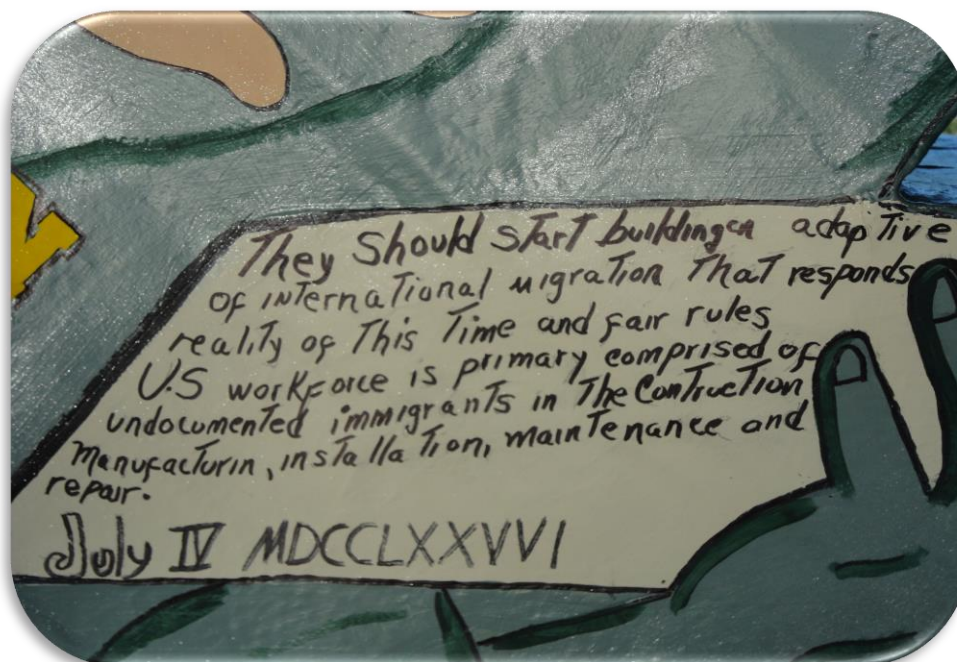 They should start buildingen adaptive
of international migration that responds
reality of this time and fair rules
U.S workforce is primary comprised of
undocumented immigrants in the Contruction
manufacturin, installation, maintenance and
repair.
July IV MDCCLXXVVI